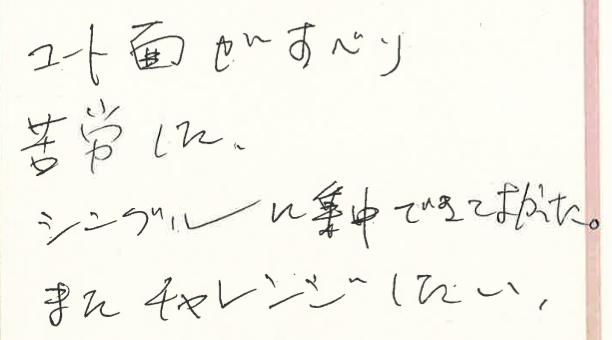 コート面がすべり
苦労した、
シングルに集中できてよかった。
またチャレンジしたい、